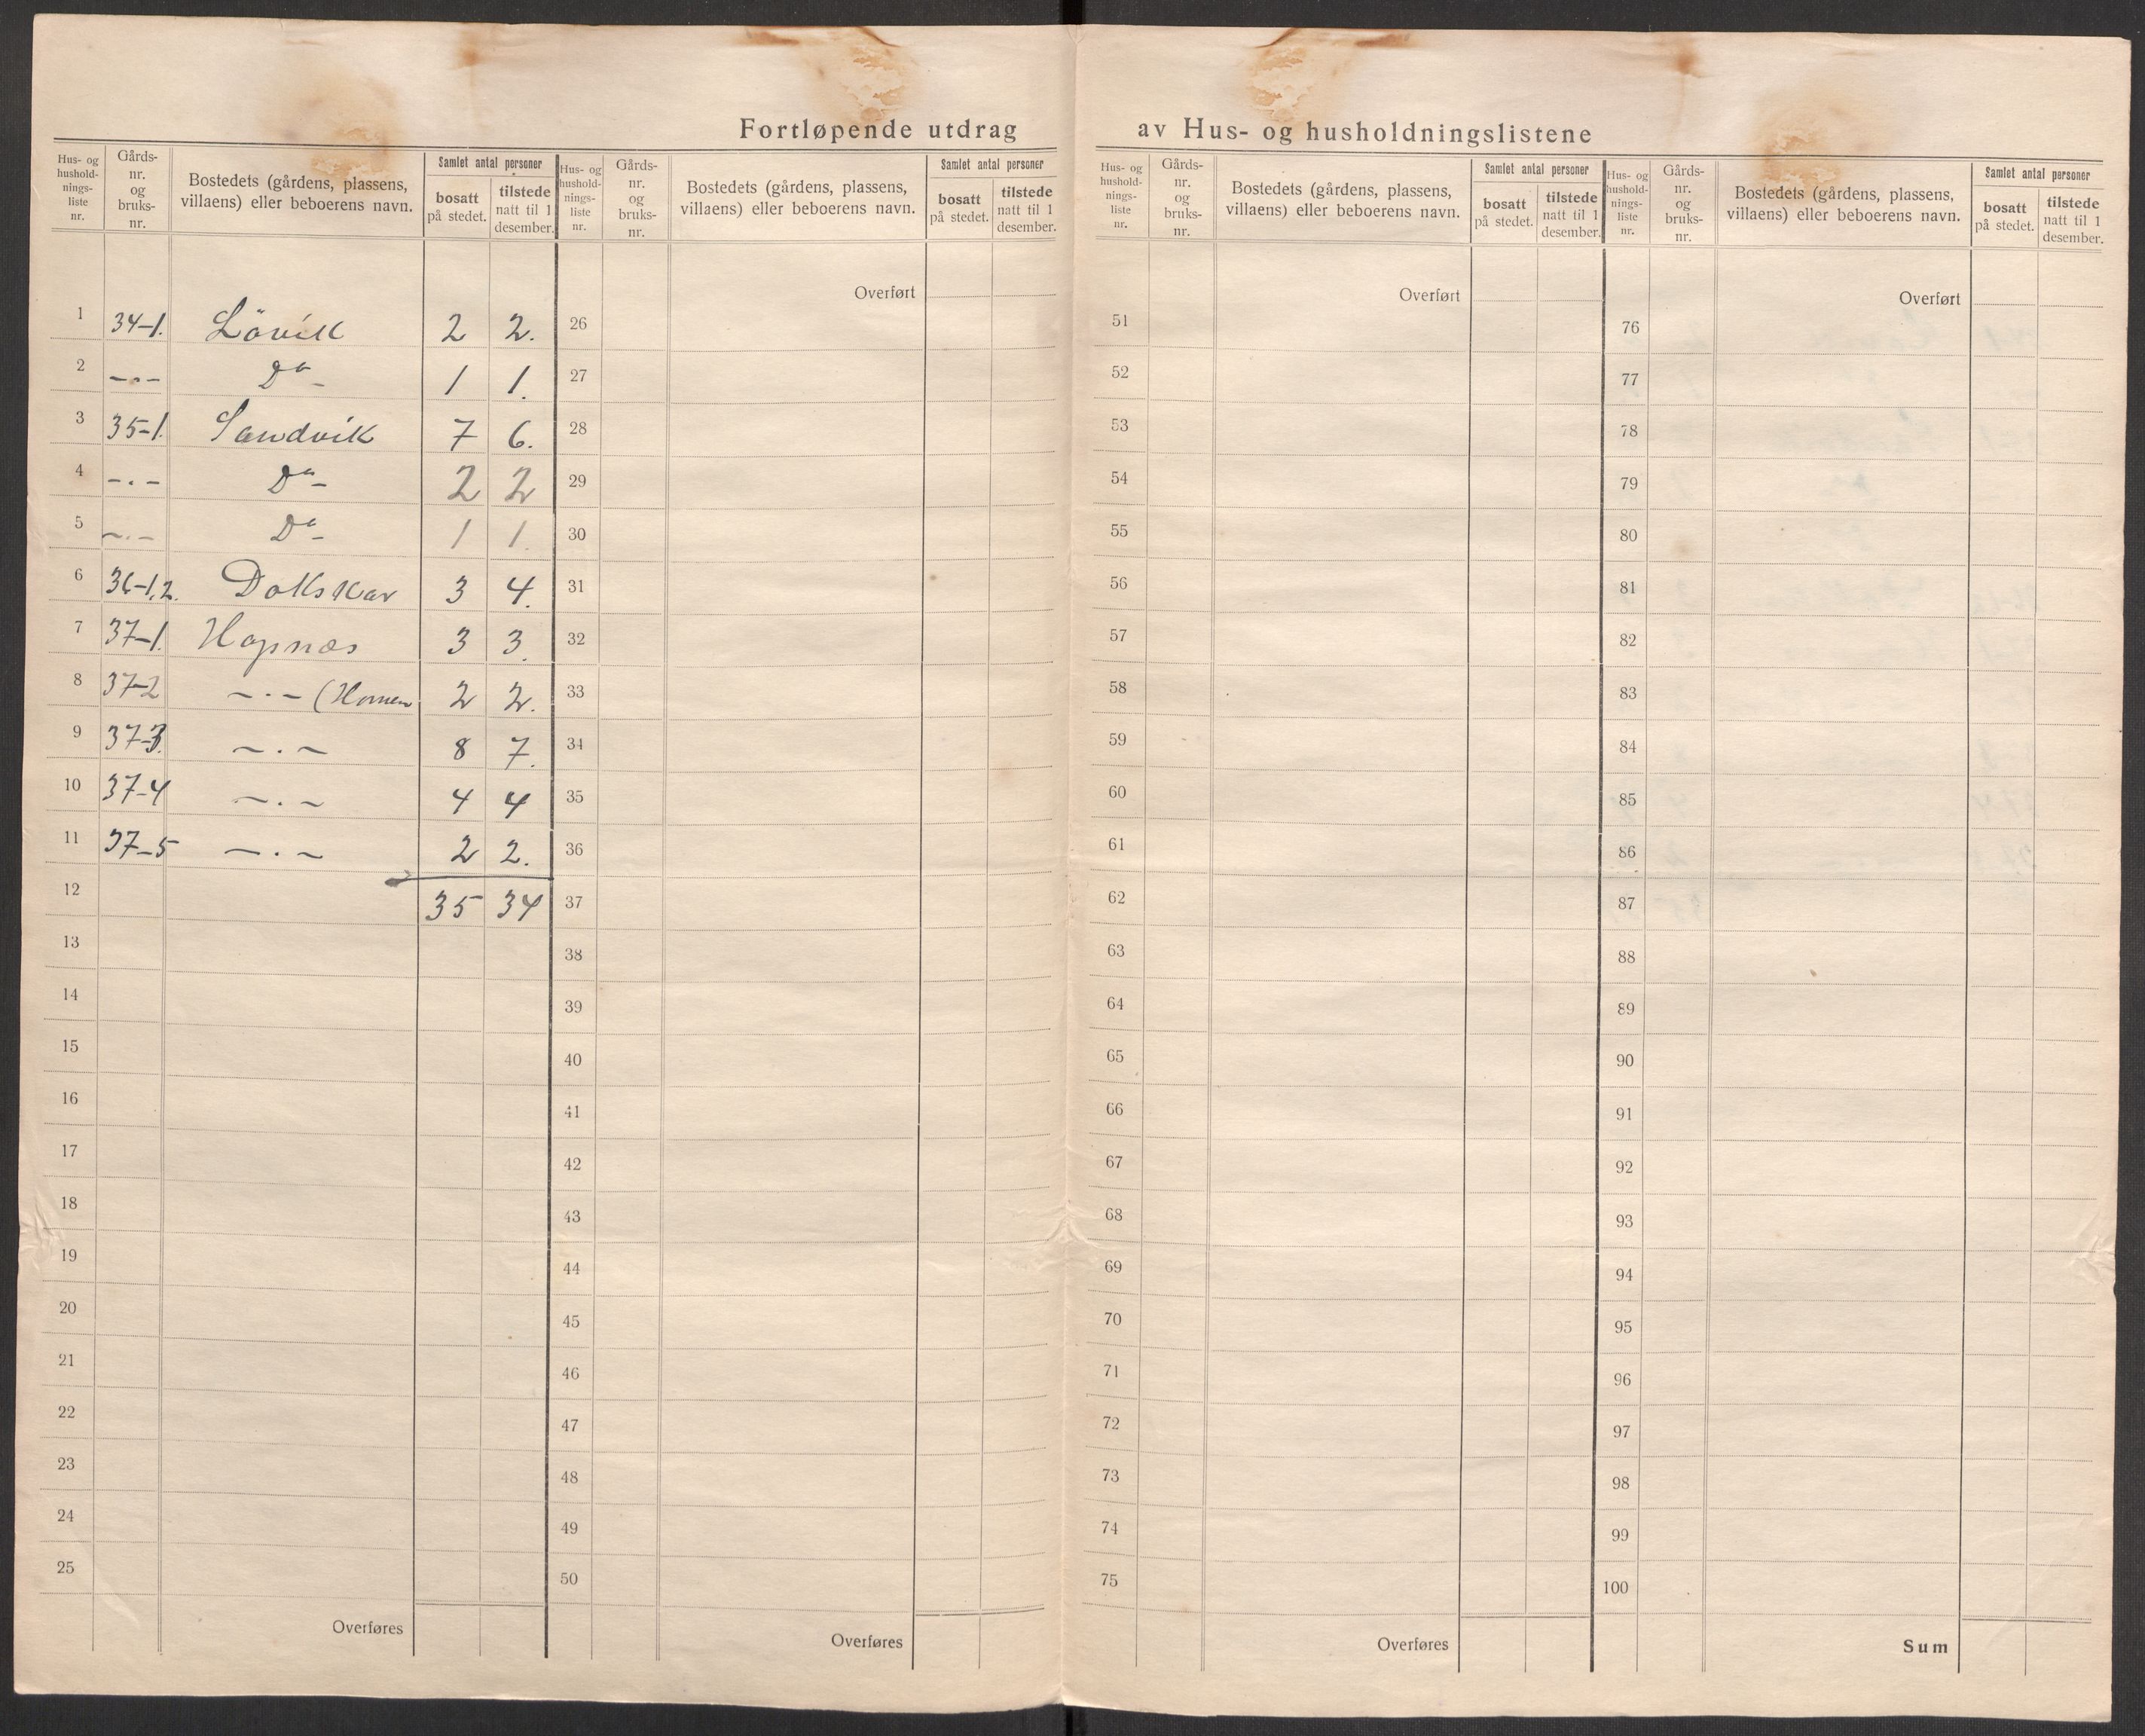 Fortløpende utdrag av Hus- og husholdningslistene
Hus- og hushold-nings-liste nr. Gårds-nr. og bruks-nr. Bostedets (gårdens, plassens, villaens) eller beboerens navn. Samlet antal personer bosatt på stedet. tilstede natt til 1 desember.
Hus- og hushold-nings-liste nr. Gårds-nr. og bruks-nr. Bostedets (gårdens, plassens, villaens) eller beboerens navn. Samlet antal personer bosatt på stedet. tilstede natt til 1 desember.
Hus- og hushold-nings-liste nr. Gårds-nr. og bruks-nr. Bostedets (gårdens, plassens, villaens) eller beboerens navn. Samlet antal personer bosatt på stedet. tilstede natt til 1 desember.
Hus- og hushold-nings-liste nr. Gårds-nr. og bruks-nr. Bostedets (gårdens, plassens, villaens) eller beboerens navn. Samlet antal personer bosatt på stedet. tilstede natt til 1 desember.
1 34-1. Lövik 2 2.
2 -"- Do- 1 1.
3 35-1. Sandvik 7 6.
4 -.- Do- 2 2
5 -.- Do- 1 1.
6 36-1,2. Dokskar 3 4.
7 37-1. Hopnæs 3 3.
8 37-2 -.- ( 2 2.
9 37-3. -.- 8 7.
10 37-4 -.- 4 4
11 37-5 -.- 2 2.
12 35 34
13
14
15
16
17
18
19
20
21
22
23
24
25
Overføres
Overført
26
27
28
29
30
31
32
33
34
35
36
37
38
39
40
41
42
43
44
45
46
47
48
49
50
Overføres
Overført
51
52
53
54
55
56
57
58
59
60
61
62
63
64
65
66
67
68
69
70
71
72
73
74
75
Overføres
Overført
76
77
78
79
80
81
82
83
84
85
86
87
88
89
90
91
92
93
94
95
96
97
98
99
100
Sum